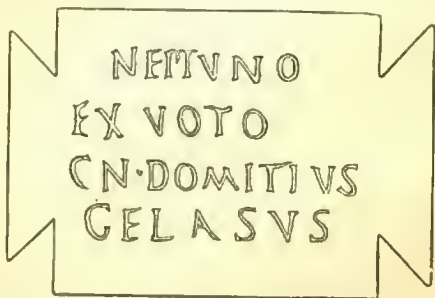 NEPTVNO
EX VOTO
CN·DOMITIVS
GELASVS